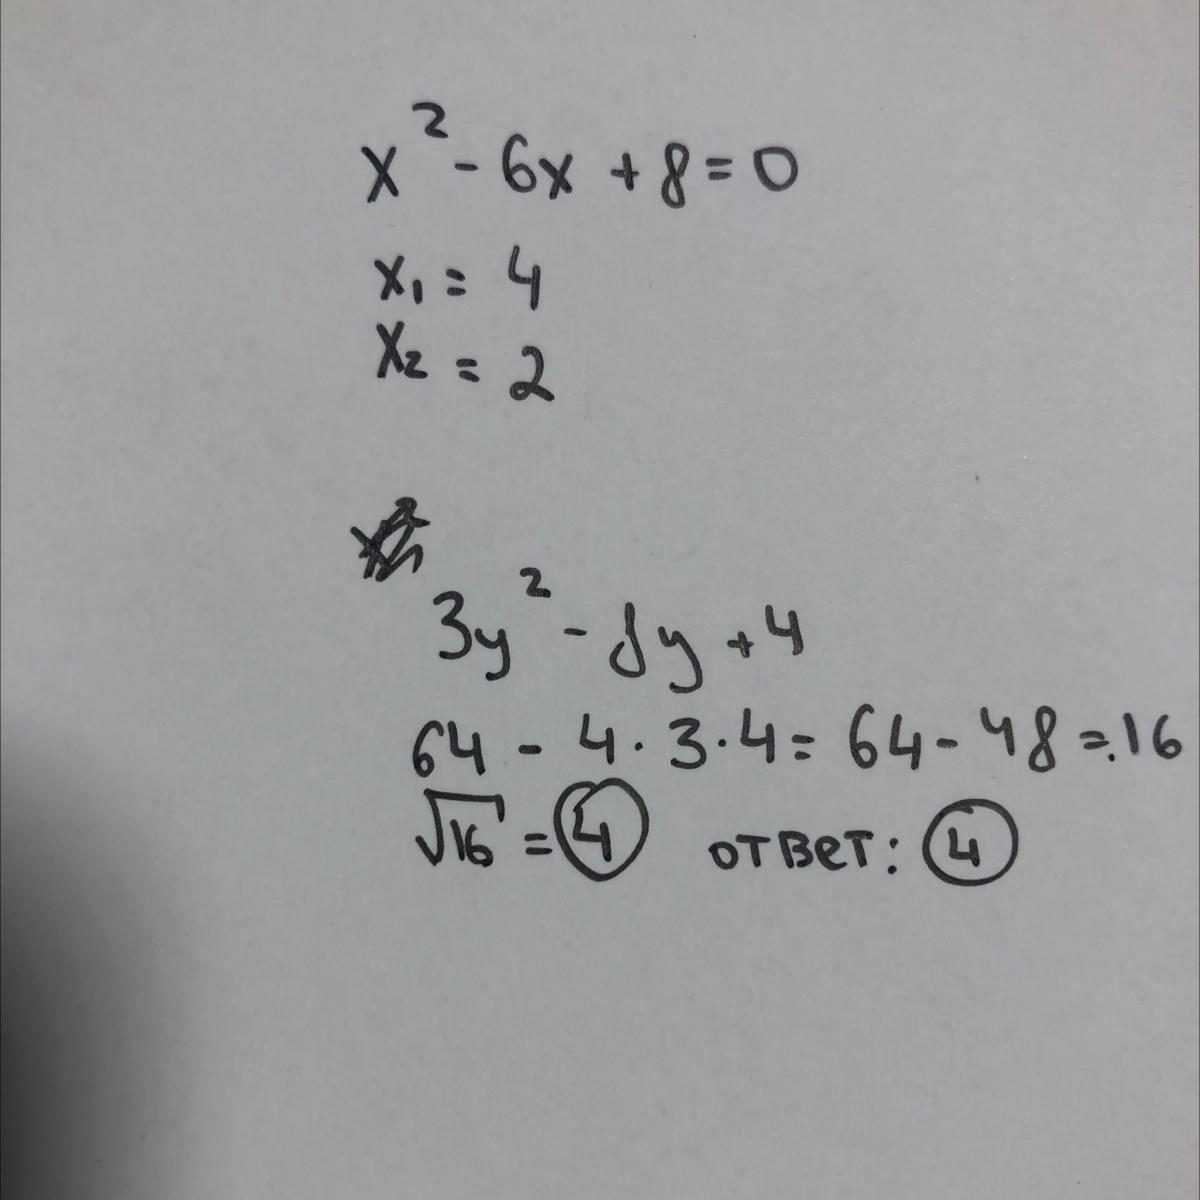 x² - 6x + 8 = 0
x₁ = 4
x₂ = 2
3y² - 8y + 4
64 - 4 · 3 · 4 = 64 - 48 = 16
√16 = 4 ответ: 4